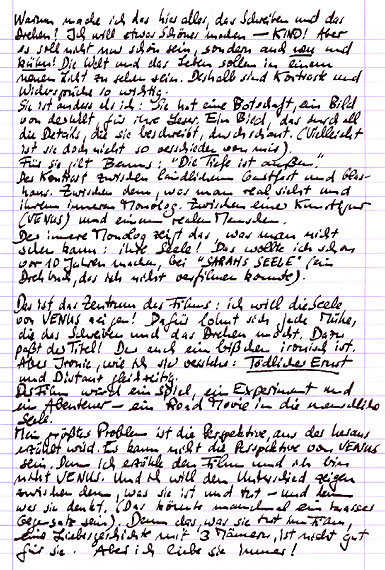 Warum mache ich das hier alles, das Schreiben und das
Drehen? Ich will etwas Schönes machen — KINO! Aber
es soll nicht nur schön sein, sondern auch neu und
kühn! Die Welt und das Leben sollen in einem
neuen Licht zu sehen sein. Deshalb sind Kontraste und
Widersprüche so wichtig.
Sie ist anders als ich: Sie hat eine Botschaft, ein Bild
von der Welt, für ihre Leser. Ein Bild, das durch all
die Details, die sie beschreibt, durchscheint. (Vielleicht
ist sie doch nicht so verschieden von mir).
Für sie gilt Benns: "Die Tiefe ist außen."
Der Kontrast zwischen ländlichem Gasthof und
haus. Zwischen dem, was man real sieht und
ihrem inneren Monolog. Zwischen einer Kunstfigur
(VENUS) und einem realen Menschen.
Der innere Monolog zeigt das, was man nicht
sehen kann: ihre Seele! Das wollte ich schon
vor 10 Jahren machen, bei "SARAHS SEELE" (ein
Drehbuch, das ich nicht verfilmen konnte).
Das ist das Zentrum des Films: ich will die Seele
von VENUS zeigen! Dafür lohnt sich jede Mühe,
die das Schreiben und das Drehen macht. Dazu
paßt der Titel! Der auch ein bißchen ironisch ist.
Aber Ironie, wie ich sie verstehe: Tödlicher Ernst
und Distanz gleichzeitig.
Der Film wird ein Spiel, ein Experiment und
ein Abenteuer — ein Road Movie in die menschliche
Seele.
Mein größtes Problem ist die Perspektive, aus der heraus
erzählt wird. Es kann nicht die Perspektive von VENUS
sein. Denn ich erzähle den Film und ich bin
nicht VENUS. Und ich will den Unterschied zeigen
zwischen dem, was sie ist und tut — und dem
was sie denkt. (Das könnte manchmal ein krasser
Gegensatz sein). Denn das, was sie tut im Film,
eine Liebesgeschichte mit 3 Männern, ist nicht gut
für sie. Aber ich liebe sie immer!